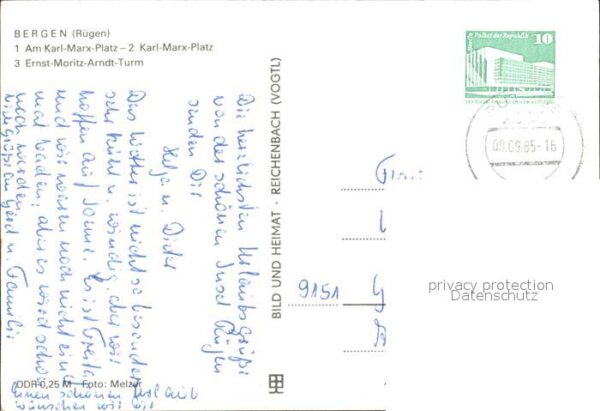 BERGEN (Rügen)
1 Am Karl-Marx-Platz – 2 Karl-Marx-Platz
3 Ernst-Moritz-Arndt-Turm
Die herzlichsten Urlaubsgrüße
von der schönen Insel Rügen
senden Dir
Helga u. Dieter
Das Wetter ist nicht so besonders
sehr kühl u. windig aber wir
hoffen auf Sonne. Es ist Freitag
und wir waren noch nicht ein
mal baden; aber es wird schon
noch werden.
Viele Grüße an Gerd u. Familie
Einen schönen Urlaub
wünschen wir Dir
DDR 0,25 M Foto: Melzer
BILD UND HEIMAT · REICHENBACH (VOGTL)
Palast der Republik
10
09.09.85-16
9151
privacy protection
Datenschutz